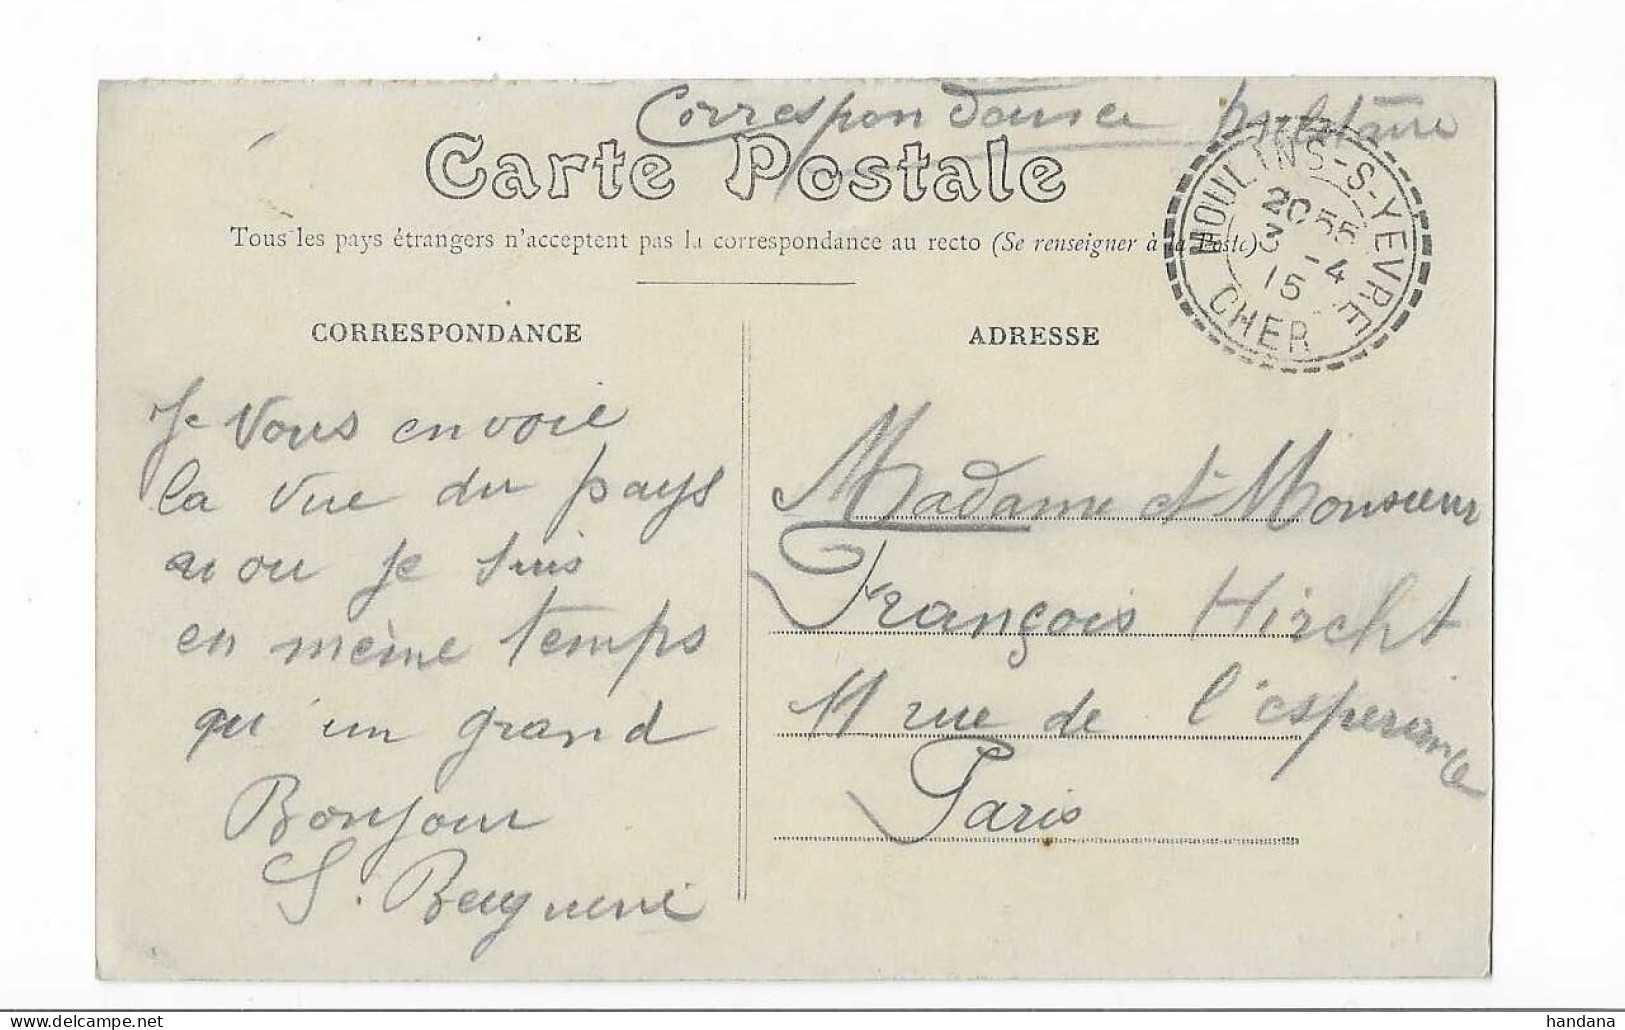 Correspondance militaire
Carte Postale
Tous les pays étrangers n'acceptent pas la correspondance au recto (Se renseigner à la Poste)
MOULINS-S-YEVRE
20 55
3 -4
15
CHER
CORRESPONDANCE
ADRESSE
Je vous envoie
la vue du pays
ou je suis
en même temps
qu'un grand
Bonjour
Madame et Monsieur
François Hircht
11 rue de l'esperance
Paris
handana